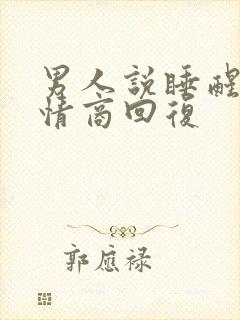 男人說睡醒
情商回復
郭應祿